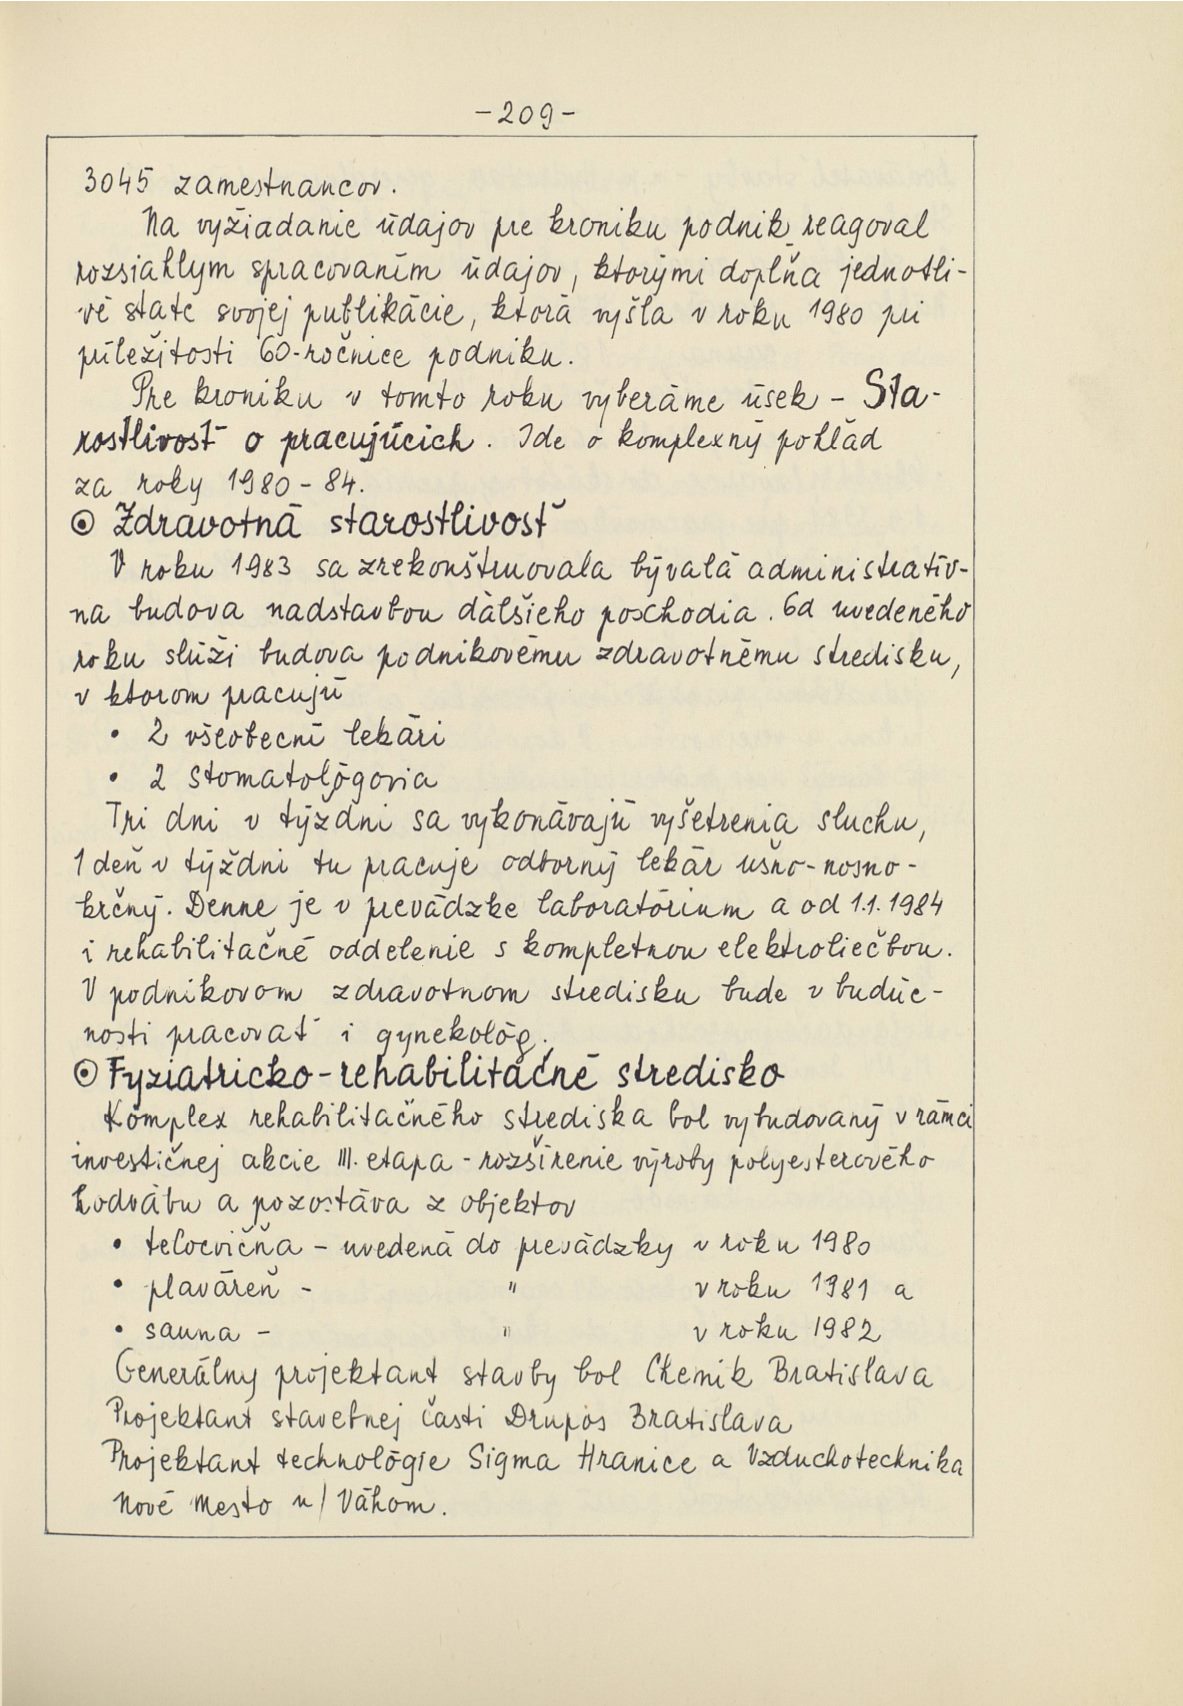 -209-
3045 zamestnancov.
Na vyžiadanie údajov pre kroniku podnik reagoval
rozsiahlym spracovaním údajov, ktorými doplňa jednotli-
vé state svojej publikácie, ktorá vyšla v roku 1980 pri
príležitosti 60-ročnice podniku.
Pre kroniku v tomto roku vyberáme úsek - Sta-
rostlivosť o pracujúcich. Ide o komplexný pohľad
za roky 1980-84.
⊙ Zdravotná starostlivosť
V roku 1983 sa zrekonštruovala bývalá administratív-
na budova nadstavbou ďalšieho poschodia. Od uvedeného
roku slúži budova podnikovému zdravotnému stredisku,
v ktorom pracujú
• 2 všeobecní lekári
• 2 stomatológovia
Tri dni v týždni sa vykonávajú vyšetrenia sluchu,
1 deň v týždni tu pracuje odborný lekár ušno-nosno-
krčný. Denne je v prevádzke laboratórium a od 1.1.1984
i rehabilitačné oddelenie s kompletnou elektroliečbou.
V podnikovom zdravotnom stredisku bude v budúc-
nosti pracovať i gynekológ.
⊙ Fyziatricko-rehabilitačné stredisko
Komplex rehabilitačného strediska bol vybudovaný v rámci
investičnej akcie III. etapa - rozšírenie výroby polyesterového
hodvábu a pozostáva z objektov
• telocvičňa - uvedená do prevádzky v roku 1980
• plaváreň - " v roku 1981 a
• sauna - " v roku 1982
Generálny projektant stavby bol Chemik Bratislava
Projektant stavebnej časti Drupos Bratislava
Projektant technológie Sigma Hranice a Vzduchotechnika
Nové Mesto n/Váhom.